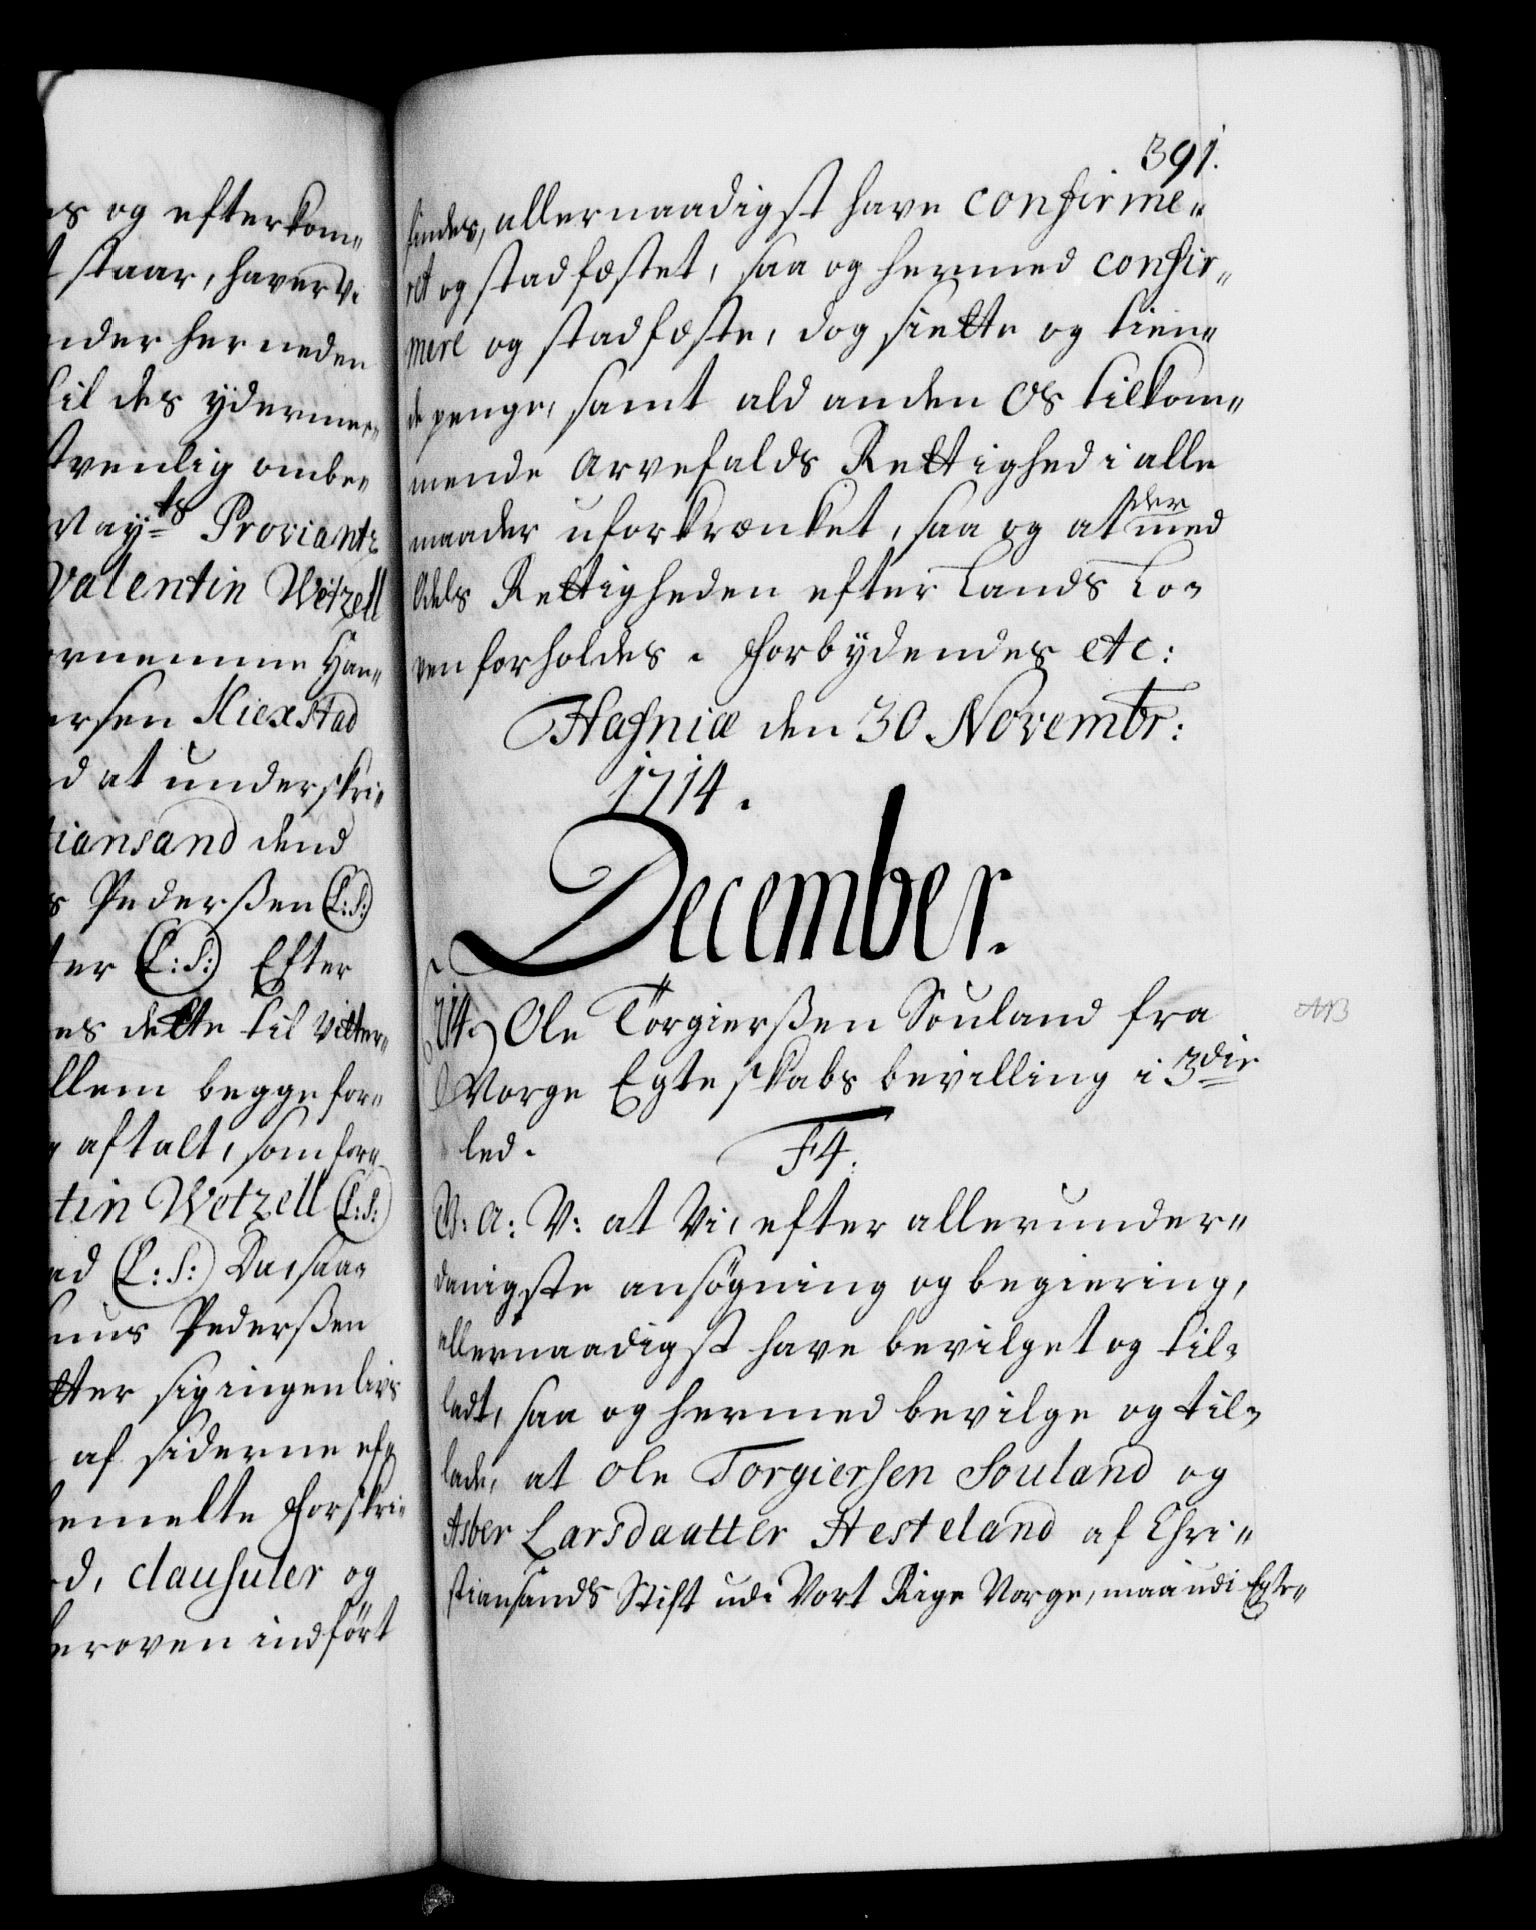 es og efterkom„
t staar, haver Vi
nder her neden
til des ydermee„
tvenlig ombe„
May^ts Proviantz
Valentin Wetzell
ornemme Han„
ersen Kiexstad
d at underskri„
tiansand dend
s Pederßen (L:S:)
ter (L:S:) Efter
es dette til Vitter„
llem begge for„
aftalt, som for„
tin Wetzell (L:S:)
ad (L:S:) Da saa„
mus Pederßen
tter sig ingenlivs
af siderne ef„
bemelte forskri„
d, clausuler og
heroven indført
391.
findes, allernaadigst have confirme„
ret og stadfæstet, saa og hermed confir„
mere og stadfæste, dog siette og tien„
de penge, samt ald anden Os tilkom„
mende Arvefalds Rettighed i alle
maader uforkrænket, saa og at der med
Odels Rettigheden efter Lands Lo„
ven forholdes. Forbydendes etc:
Hafniæ den 30 Novembr:
1714.
December.
Ole Törgierßen Souland fra
Norge Egteskabs bevilling i 3die
led. F4.
G: A: V: at Vi, efter allerunder„
danigste ansøgning og begiering,
allernaadigst have bevilget og til„
ladt, saa og hermed bevilge og til„
lade, at Ole Torgiersen Souland og
Asber Larsdaatter Hesteland af Chri„
stiansands Stift udi Vort Rige Norge, maa udi Egte„